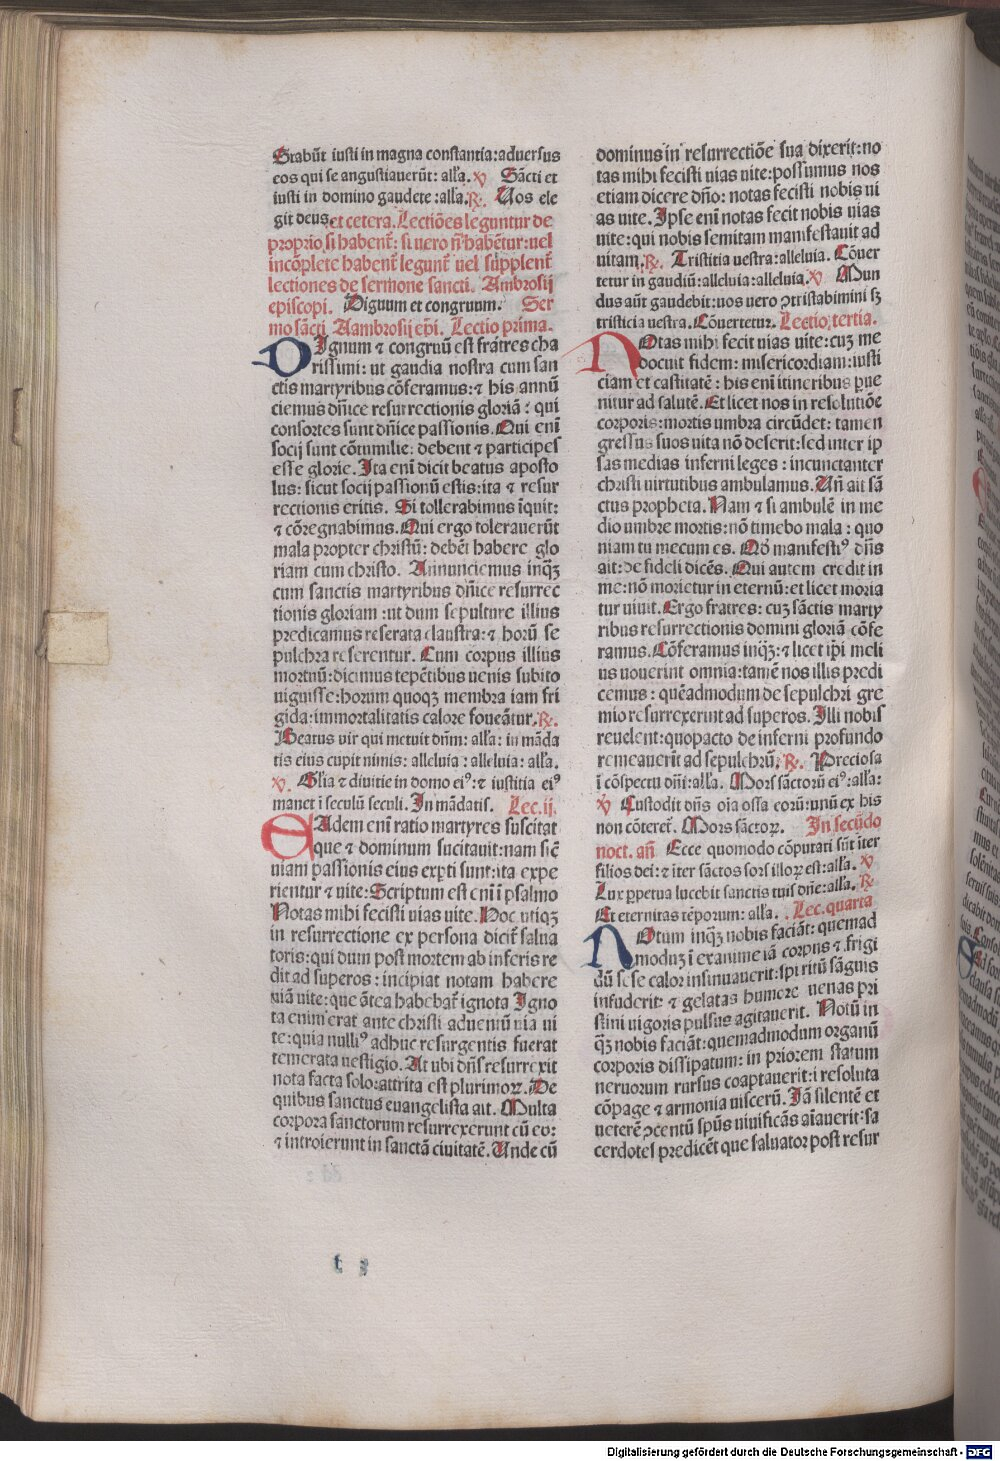 Stabūt iusti in magna constantia:aduersus
eos qui se angustiauerūt: alľa.℣ Sācti et
iusti in domino gaudete:alľa.℟. Uos ele
git deus et cetera.Lectiōes leguntur de
proprio si habenť: si uero ñ habētur:uel
incōplete habenť legunť uel supplenť
lectiones de sermone sancti. Ambrosij
episcopi. Dignum et congruum. Ser
mo sācti Aambrosij ep̄i. Lectio prima.
DIgnum ⁊ congruū est fratres cha
rissimi: ut gaudia nostra cum san
ctis martyribus cōferamus:⁊ his annū
ciemus dn̄ice resurrectionis gloriā: qui
consortes sunt dn̄ice passionis. Qui enī
socij sunt cōtumilie: debent ⁊ participes
esse glorie. Ita enī dicit beatus aposto
lus: sicut socij passionū estis:ita ⁊ resur
rectionis eritis. Si tollerabimus īquit:
⁊ cōregnabimus. Qui ergo tolerauerūt
mala propter christū: debēt habere glo
riam cum christo. Annunciemus inqꝫ
cum sanctis martyribus dn̄ice resurrec
tionis gloriam :ut dum sepulture illius
predicamus reserata claustra:⁊ horū se
pulchra reserentur. Cum corpus illius
mortuū:dicimus tepētibus uenis subito
uiguisse:horum quoqꝫ membra iam fri
gida:immortalitatis calore foueātur.℟.
Beatus uir qui metuit dn̄m: alľa: in māda
tis eius cupit nimis: alleluia: alleluia: alľa.
℣. Glīa ⁊ diuitie in domo eiꝰ:⁊ iustitia eiꝰ
manet ī seculū seculi. In mādatis. Lec.ij.
EAdem enī ratio martyres suscitat
que ⁊ dominum sucitauit:nam sic̄
uiam passionis eius exp̄ti sunt:ita expe
rientur ⁊ uite:Scriptum est enī ī psalmo
Notas mihi fecisti uias uite. Hoc utiqꝫ
in resurrectione ex persona diciť salua
toris:qui dum post mortem ab inferis re
dit ad superos: incipiat notam habere
uiā uite:que ātea habebať ignota Igno
ta enim erat ante christi aduentū uia ui
te:quia nulliꝰ adhuc resurgentis fuerat
temerata uestigio. At ubi dn̄s resurrexit
nota facta solo:attrita est plurimoꝝ. De
quibus sanctus euangelista ait. Multa
corpora sanctorum resurrexerunt cū eo:
⁊ introierunt in sanctā ciuitatē. Unde cū
dominus in resurrectiōe sua dixerit:no
tas mihi fecisti uias uite:possumus nos
etiam dicere dn̄o: notas fecisti nobis ui
as uite. Ipse enī notas fecit nobis uias
uite:qui nobis semitam manifestauit ad
uitam.℟. Tristitia uestra:alleluia. Cōuer
tetur in gaudiū:alleluia:alleluia.℣ Mun
dus aūt gaudebit:uos uero ꝯtristabimini sꝫ
tristicia uestra. Cōuertetur. Lectio,tertia.
NOtas mihi fecit uias uite:cuꝫ me
docuit fidem: misericordiam:iusti
ciam et castitatē: his enī itineribus ꝑue
nitur ad salutē. Et licet nos in resolutiōe
corporis:mortis umbra circūdet: tamen
gressus suos uita nō deserit:sed inter ip
sas medias inferni leges : incunctanter
christi uirtutibus ambulamus. Uñ ait sā
ctus propheta. Nam ⁊ si ambulē in me
dio umbre mortis:nō timebo mala : quo
niam tu mecum es. Qđ manifestiꝰ dn̄s
ait:de fideli dicēs. Qui autem credit in
me:nō morietur in eternū:et licet moria
tur uiuit. Ergo fratres: cuꝫ sāctis marty
ribus resurrectionis domini gloriā cōfe
ramus. Cōferamus inqꝫ:⁊ licet ip̄i meli
us nouerint omnia:tamē nos illis predi
cemus : quēadmodum de sepulchri gre
mio resurrexerunt ad superos. Illi nobis
reuelent:quo pacto de inferni profundo
remeauerit ad sepulchrū. ℟. Preciosa
ī cōspectu dn̄i:alľa. Mors sāctorū eiꝰ:alľa:
℣ Custodit dn̄s oīa ossa eorū:unū ex his
non cōtereť. Mors sāctoꝝ. In secūdo
noct. añ Ecce quomodo cōputati sūt īter
filios dei: ⁊ īter sāctos sors illoꝝ est:alľa. ℣
Lux ꝑpetua lucebit sanctis tuis dn̄e:alľa. ℟
Et eternitas tēporum: alľa. Lec.quarta
NOtum inqꝫ nobis faciāt: quemad
moduꝫ ī exanime iā corpus ⁊ frigi
dū sese calor insinuauerit:spiritū sāguis
infuderit: ⁊ gelatas humore uenas pri
stini uigoris pulsus agitauerit. Notū in
qꝫ nobis faciāt:quemadmodum organū
corporis dissipatum: in priorem statum
neruorum rursus coaptauerit:ī resoluta
cōpage ⁊ armonia uiscerū. Iā silentē et
ueterē ꝯcentū sp̄us uiuificās aīauerit:sa
cerdotes predicēt que saluator post resur
t 3
Digitalisierung gefördert durch die Deutsche Forschungsgemeinschaft - DFG